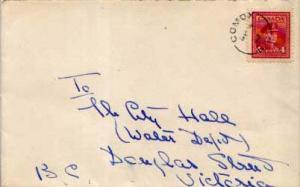 COMO
CANADA
4 4
To
The City Hall
(Water Dept)
Douglas Street
Victoria
B C